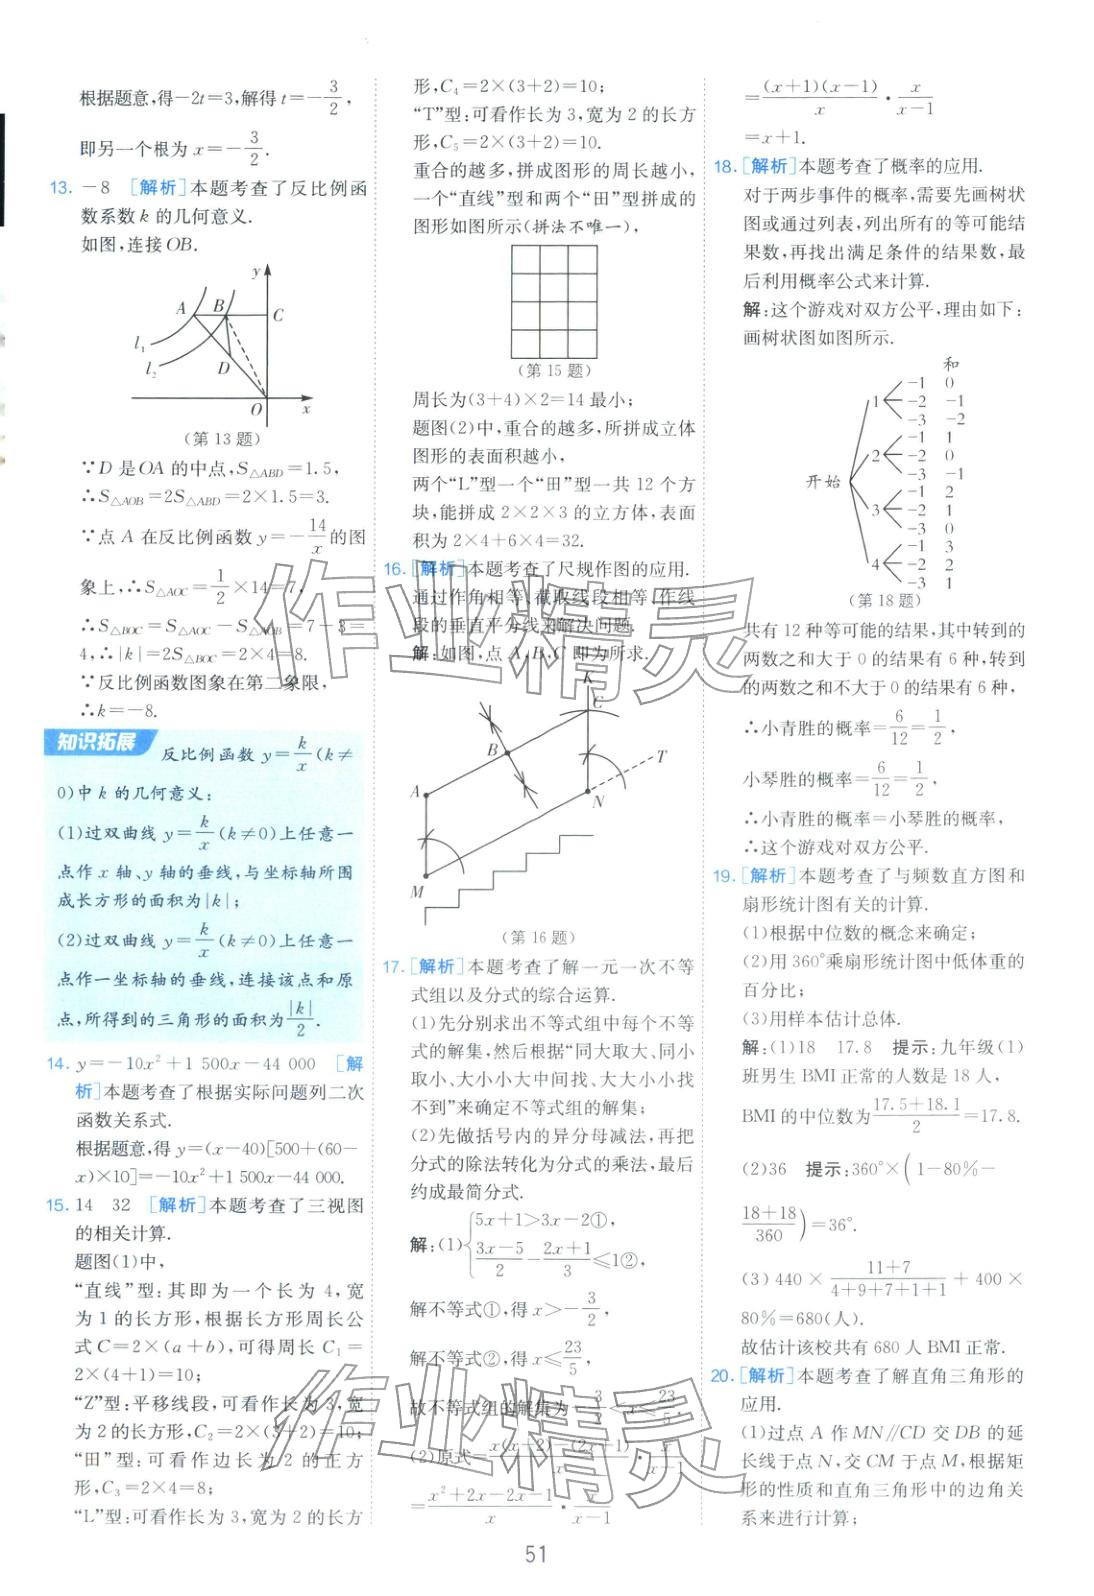 根据题意,得-2t=3,解得t=-3/2,
即另一个根为x=-3/2.
13. -8 [解析]本题考查了反比例函
数系数k的几何意义.
如图,连接OB.
y
A B C
l₁
l₂ D
O x
(第13题)
∵D是OA的中点,S△ABD=1.5,
∴S△AOB=2S△ABD=2×1.5=3.
∵点A在反比例函数y=-14/x的图
象上,∴S△AOC=1/2×14=7,
∴S△BOC=S△AOC-S△AOB=7-3=
4,∴|k|=2S△BOC=2×4=8.
∵反比例函数图象在第二象限,
∴k=-8.
知识拓展 反比例函数y=k/x(k≠
0)中k的几何意义:
(1)过双曲线y=k/x(k≠0)上任意一
点作x轴、y轴的垂线,与坐标轴所围
成长方形的面积为|k|;
(2)过双曲线y=k/x(k≠0)上任意一
点作一坐标轴的垂线,连接该点和原
点,所得到的三角形的面积为|k|/2.
14. y=-10x²+1 500x-44 000 [解
析]本题考查了根据实际问题列二次
函数关系式.
根据题意,得y=(x-40)[500+(60-
x)×10]=-10x²+1 500x-44 000.
15. 14 32 [解析]本题考查了三视图
的相关计算.
题图(1)中,
“直线”型:其即为一个长为4,宽
为1的长方形,根据长方形周长公
式C=2×(a+b),可得周长C₁=
2×(4+1)=10;
“Z”型:平移线段,可看作长为3,宽
为2的长方形,C₂=2×(3+2)=10;
“田”型:可看作边长为2的正方
形,C₃=2×4=8;
“L”型:可看作长为3,宽为2的长方
形,C₄=2×(3+2)=10;
“T”型:可看作长为3,宽为2的长方
形,C₅=2×(3+2)=10.
重合的越多,拼成图形的周长越小,
一个“直线”型和两个“田”型拼成的
图形如图所示(拼法不唯一),
(第15题)
周长为(3+4)×2=14最小;
题图(2)中,重合的越多,所拼成立体
图形的表面积越小,
两个“L”型一个“田”型一共12个方
块,能拼成2×2×3的立方体,表面
积为2×4+6×4=32.
16. [解析]本题考查了尺规作图的应用.
通过作角相等、截取线段相等、作线
段的垂直平分线来解决问题.
解:如图,点A,B,C即为所求.
K
C
B
T
A
N
M
(第16题)
17. [解析]本题考查了解一元一次不等
式组以及分式的综合运算.
(1)先分别求出不等式组中每个不等
式的解集,然后根据“同大取大、同小
取小、大小小大中间找、大大小小找
不到”来确定不等式组的解集;
(2)先做括号内的异分母减法,再把
分式的除法转化为分式的乘法,最后
约成最简分式.
解:(1){5x+1>3x-2①,
(3x-5)/2-(2x+1)/3≤1②,
解不等式①,得x>-3/2,
解不等式②,得x≤23/5,
故不等式组的解集为-3/2<x≤23/5.
(2)原式=(x(x+2)-(2x+1))/x·x/(x-1)
=(x²+2x-2x-1)/x·x/(x-1)
=((x+1)(x-1))/x·x/(x-1)
=x+1.
18. [解析]本题考查了概率的应用.
对于两步事件的概率,需要先画树状
图或通过列表,列出所有的等可能结
果数,再找出满足条件的结果数,最
后利用概率公式来计算.
解:这个游戏对双方公平,理由如下:
画树状图如图所示.
和
-1 0
1 -2 -1
-3 -2
-1 1
2 -2 0
-3 -1
开始
-1 2
3 -2 1
-3 0
-1 3
4 -2 2
-3 1
(第18题)
共有12种等可能的结果,其中转到的
两数之和大于0的结果有6种,转到
的两数之和不大于0的结果有6种,
∴小青胜的概率=6/12=1/2,
小琴胜的概率=6/12=1/2,
∴小青胜的概率=小琴胜的概率,
∴这个游戏对双方公平.
19. [解析]本题考查了与频数直方图和
扇形统计图有关的计算.
(1)根据中位数的概念来确定;
(2)用360°乘扇形统计图中低体重的
百分比;
(3)用样本估计总体.
解:(1)18 17.8 提示:九年级(1)
班男生BMI正常的人数是18人,
BMI的中位数为(17.5+18.1)/2=17.8.
(2)36 提示:360°×(1-80%-
(18+18)/360)=36°.
(3)440×(11+7)/(4+9+7+1+1)+400×
80%=680(人).
故估计该校共有680人BMI正常.
20. [解析]本题考查了解直角三角形的
应用.
(1)过点A作MN//CD交DB的延
长线于点N,交CM于点M,根据矩
形的性质和直角三角形中的边角关
系来进行计算;
51
作业精灵
作业精灵